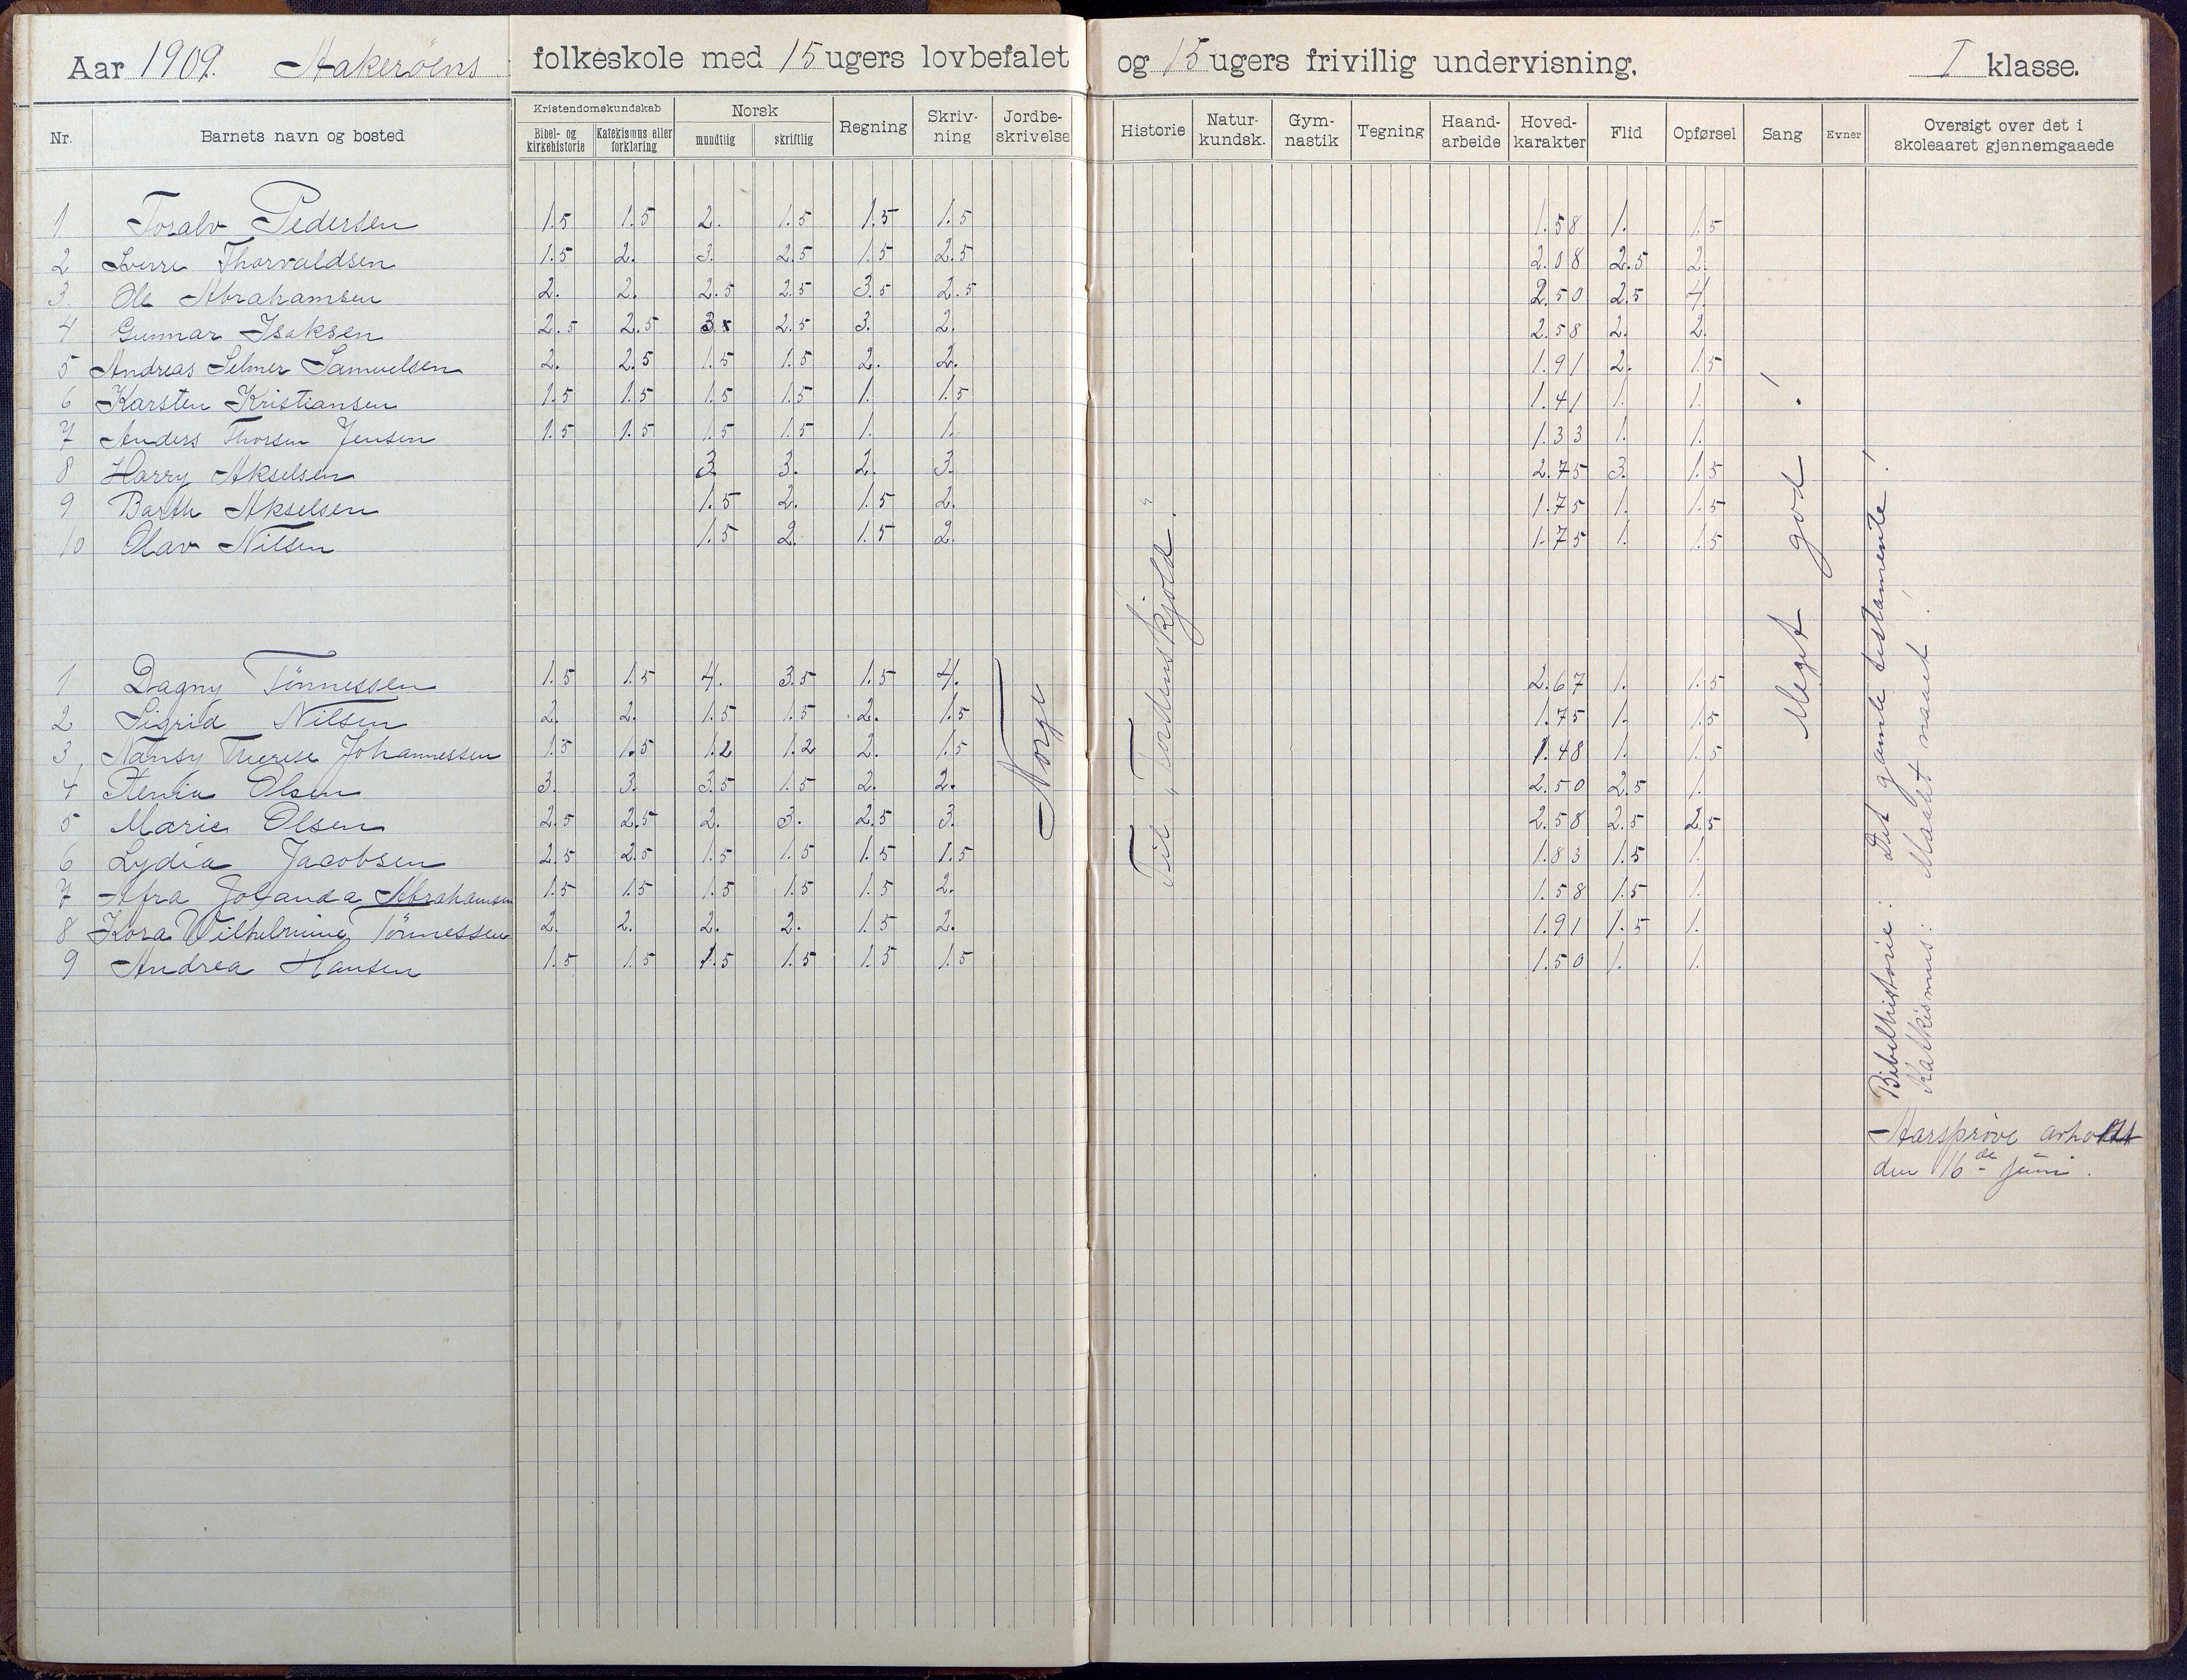 Aar 1909. Hakerøens folkeskole med 15 ugers lovbefalet og 15 ugers frivillig undervisning. I klasse.
Nr. Barnets navn og bosted Kristendomskundskab Bibel- og kirkehistorie Katekismus eller forklaring Norsk mundtlig skriftlig Regning Skriv-ning Jordbe-skrivelse Historie Natur-kundsk. Gym-nastik Tegning Haand-arbeide Hoved-karakter Flid Opførsel Sang Evner Oversigt over det i skoleaaret gjennemgaaede
1 Toralv Pedersen 1.5 1.5 2. 1.5 1.5 1.5 1.58 1. 1.5
2 Sverre Thorvaldsen 1.5 2. 3. 2.5 1.5 2.5 2.08 2.5 2.
3. Ole Abrahamsen 2. 2. 2.5 2.5 3.5 2.5 2.50 2.5 4.
4 Gunnar Isaksen 2.5 2.5 3. 2.5 3. 2. 2.58 2. 2.
5 Andreas Selmer Samuelsen 2. 2.5 1.5 1.5 2. 2. 1.91 2. 1.5
6 Karsten Kristiansen 1.5 1.5 1.5 1.5 1. 1.5 1.41 1. 1.
7 Anders Thorsen Jensen 1.5 1.5 1.5 1.5 1. 1. 1.33 1. 1.
8 Harry Akselsen 3. 3. 2. 3. 2.75 3. 1.5
9 Barth Akselsen 1.5 2. 1.5 2. 1.75 1. 1.5
10 Olav Nilsen 1.5 2. 1.5 2. 1.75 1. 1.5
1 Dagny Tönnessen 1.5 1.5 4. 3.5 1.5 4. 2.67 1. 1.5
2 Sigrid Nilsen 2. 2. 1.5 1.5 2. 1.5 1.75 1. 1.5
3 Nansy Therese Johannessen 1.5 1.5 1.2 1.2 2. 1.5 1.48 1. 1.5
4 Stenia Olsen 3. 3. 3.5 1.5 2. 2. 2.50 2.5 1.
5 Marie Olsen 2.5 2.5 2. 3. 2.5 3. 2.58 2.5 2.5
6 Lydia Jacobsen 2.5 2.5 1.5 1.5 1.5 1.5 1.83 1.5 1.
7 Afra Jolanda Abrahamsen 1.5 1.5 1.5 1.5 1.5 2. 1.58 1.5 1.
8 Kora Wilhelmine Tönnessen 2. 2. 2. 2. 1.5 2. 1.91 1.5 1.
9 Andrea Hansen 1.5 1.5 1.5 1.5 1.5 1.5 1.50 1. 1.
Norge
Til „Tordenskjold“.
Meget god!
Bibelhistorie: Det gamle testamente!
Katkismus: Maalet naaet!
Aarsprøve avholdt
den 16de juni.